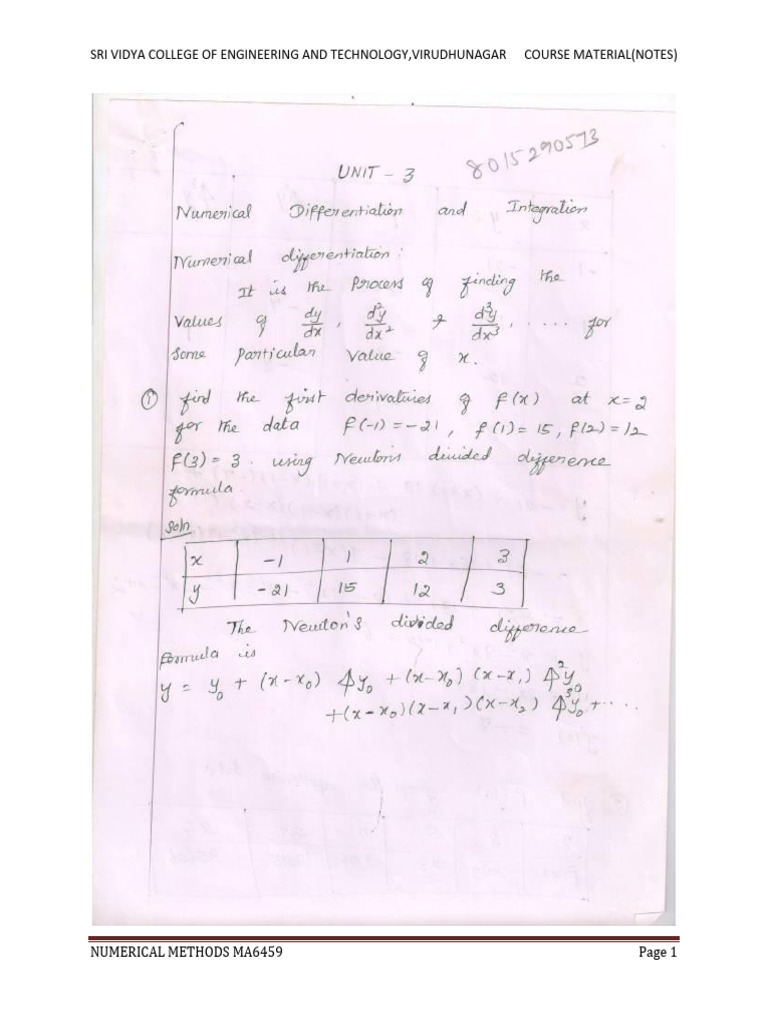 SRI VIDYA COLLEGE OF ENGINEERING AND TECHNOLOGY,VIRUDHUNAGAR COURSE MATERIAL(NOTES)
8015290573
UNIT - 3
Numerical Differentiation and Integration
Numerical differentiation :
It is the Process of finding the
values of dy/dx , d²y/dx² & d³y/dx³ , .... for
some particular value of x.
① find the first derivatives of f(x) at x=2
for the data f(-1) = -21 , f(1) = 15 , f(2) = 12
f(3) = 3 . using Newton's divided difference
formula.
Soln
x -1 1 2 3
y -21 15 12 3
The Newton's divided difference
formula is
y = y₀ + (x-x₀) ⍋y₀ + (x-x₀) (x-x₁) ⍋²y₀
+(x-x₀)(x-x₁)(x-x₂) ⍋³y₀ + ....
NUMERICAL METHODS MA6459 Page 1